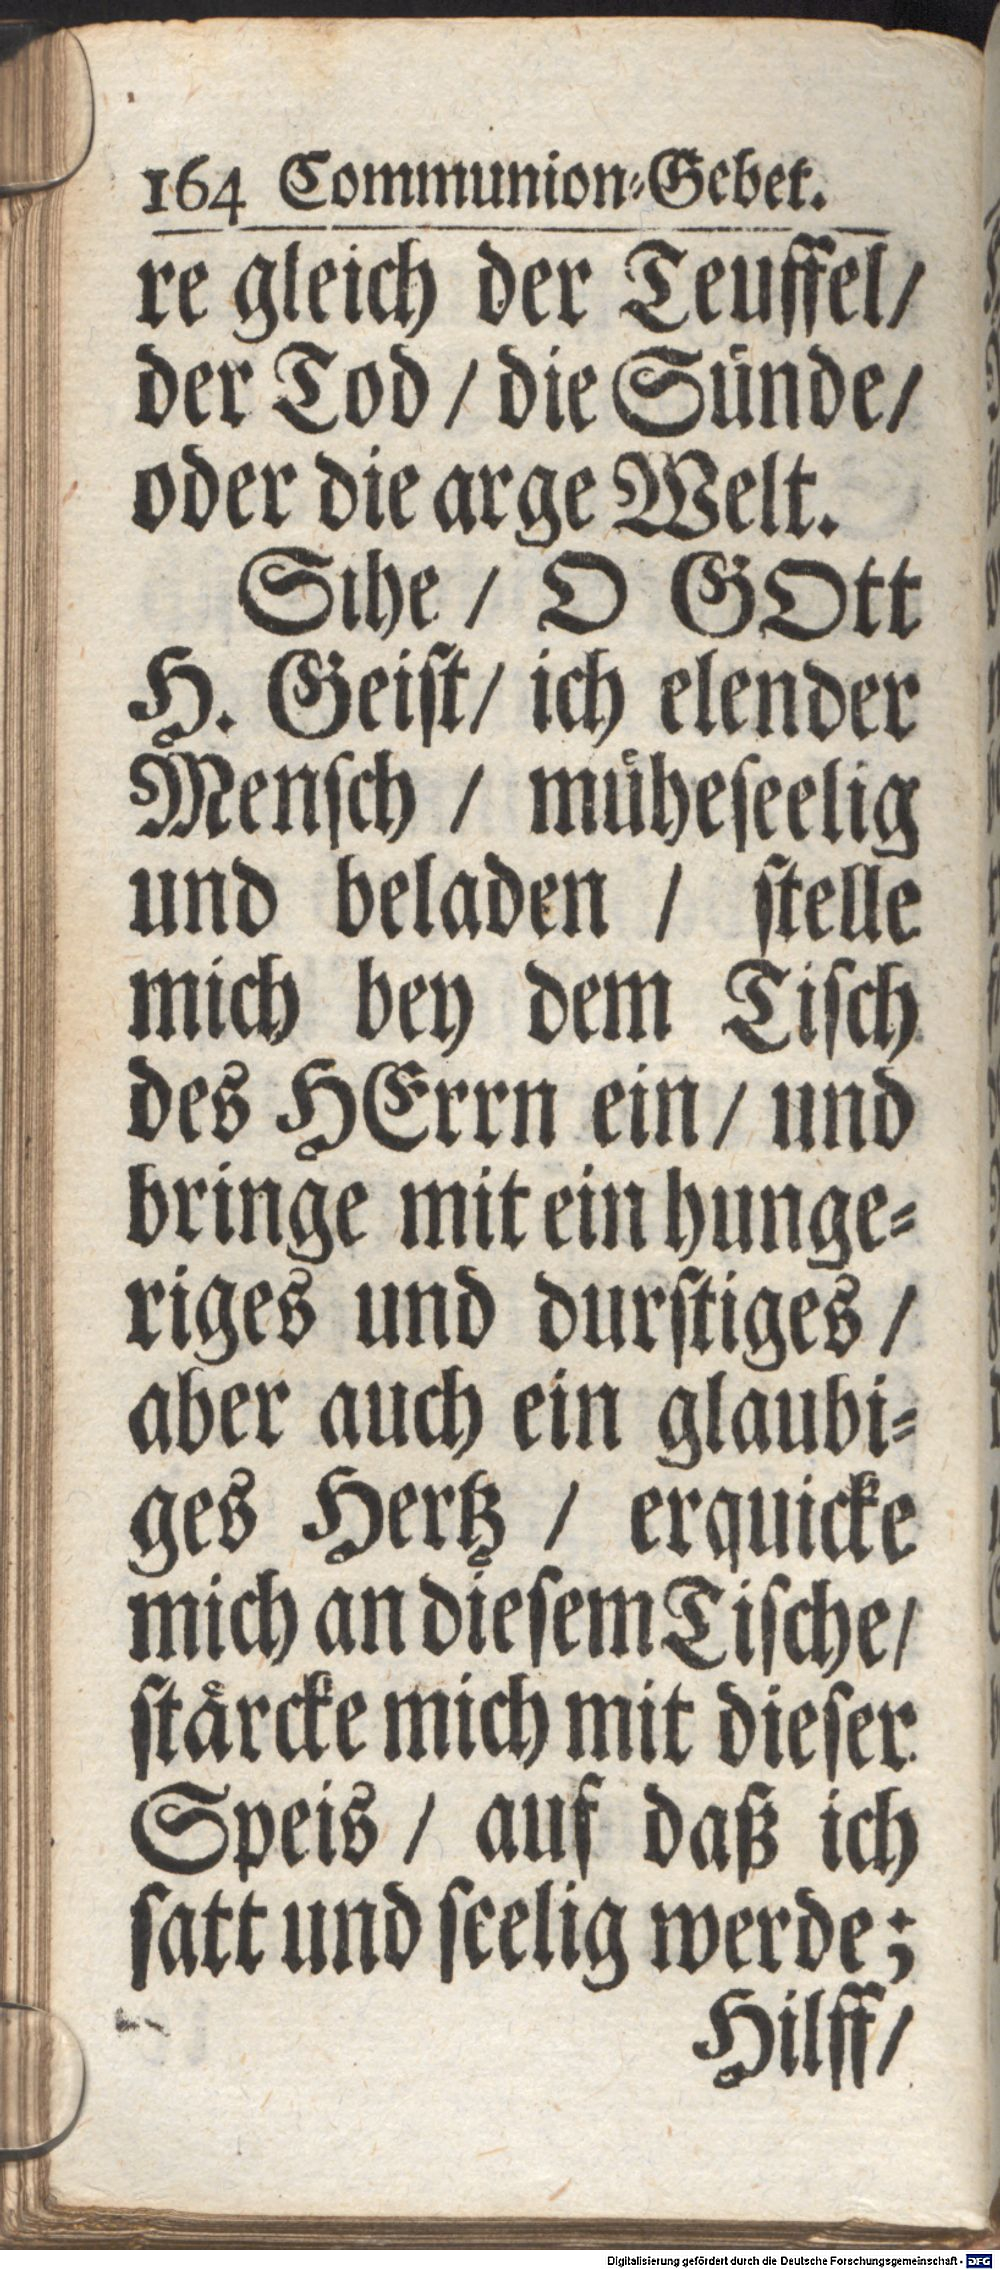 164 Communion-Gebet.
re gleich der Teuffel/
der Tod / die Sünde/
oder die arge Welt.
Sihe / O GOtt
H. Geiſt/ ich elender
Menſch / müheſeelig
und beladen / ſtelle
mich bey dem Tiſch
des HErrn ein/ und
bringe mit ein hunge-
riges und durſtiges /
aber auch ein glaubi-
ges Hertz / erquicke
mich an dieſem Tiſche/
ſtärcke mich mit dieſer
Speis / auf daß ich
ſatt und ſeelig werde;
Hilff/
Digitalisierung gefördert durch die Deutsche Forschungsgemeinschaft - DFG